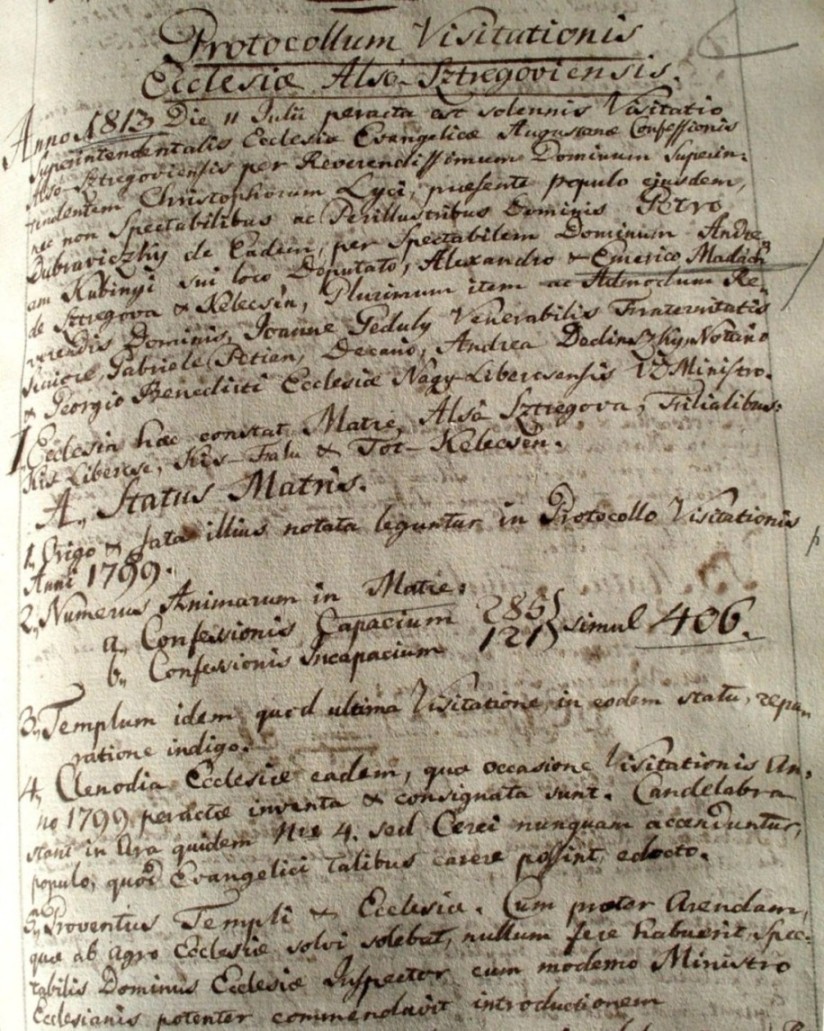 Protocollum Visitationis
Ecclesiæ Alsó-Sztregoviensis.
Anno 1813 Die 11 Julii peracta est solennis Visitatio
Superintendentalis Ecclesiæ Evangelicæ Augustanæ Confessionis
Alsó Sztregoviensis per Reverendissimum Dominum Superin-
tendentem Christophorum Lyci, præsente populo ejusdem,
nec non Spectabilibus ac Perillustribus Dominis Petro
Dubraviczky de Eadem, per Spectabilem Dominum Andre
am Kubinyi sui loco Deputato, Alexandro & Emerico Madách
de Sztregova & Kelecsén, Plurimum item ac Admodum Re-
verendis Dominis, Joanne Peduly Venerabilis Fraternitatis
Seniore, Gabriele Petien, Decano, Andrea Dedinszky, Notario
& Georgio Benedicti Ecclesiæ Nagy-Libercsensis VD Ministro.
1. Ecclesia hæc constat Matre, Alsó Sztregova, Filialibus:
Kis Libercse, Kis-Falu & Tót-Kelecsén.
A., Status Matris.
1, Origo & fata illius notata leguntur in Protocollo Visitationis
Anni 1799.
2., Numerus Animarum in Matre:
a., Confessionis Capacium 285
b., Confessionis Incapacium 121 simul 406.
3., Templum idem quod ultima Visitatione, in eodem statu, repa-
ratione indigo.
4, Clenodia Ecclesiæ eadem, quæ occasione Visitationis An-
no 1799 peractæ inventa & consignata sunt. Candelabra
stant in Ara quidem Nro 4. sed Cerei nunquam accenduntur,
populo, quod Evangelici talibus carere possint, edocto.
5., Proventus Templi & Ecclesiæ. Cum præter Arendam,
quæ ab agro Ecclesiæ solvi solebat, nullum fere habuerit, Spec-
tabilis Dominus Ecclesiæ Inspector cum moderno Ministro
Ecclesianis potenter commendavit introductionem